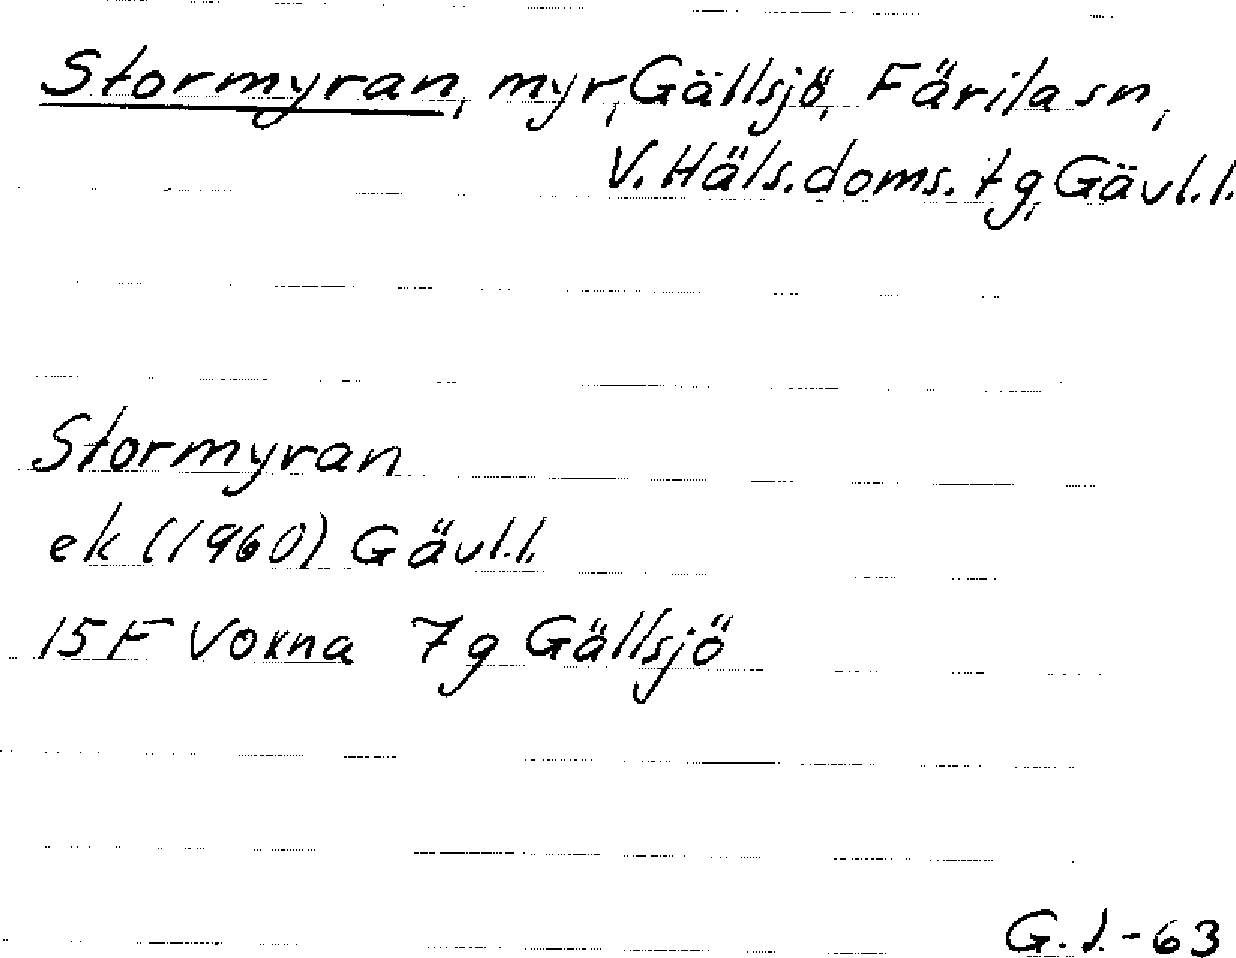 Stormyran, myr, Gällsjö, Färila sn,
V. Häls. doms. tg, Gävl. l.
Stormyran
ek (1960) Gävl. l.
15 F Voxna 7 g Gällsjö
G. J. - 63